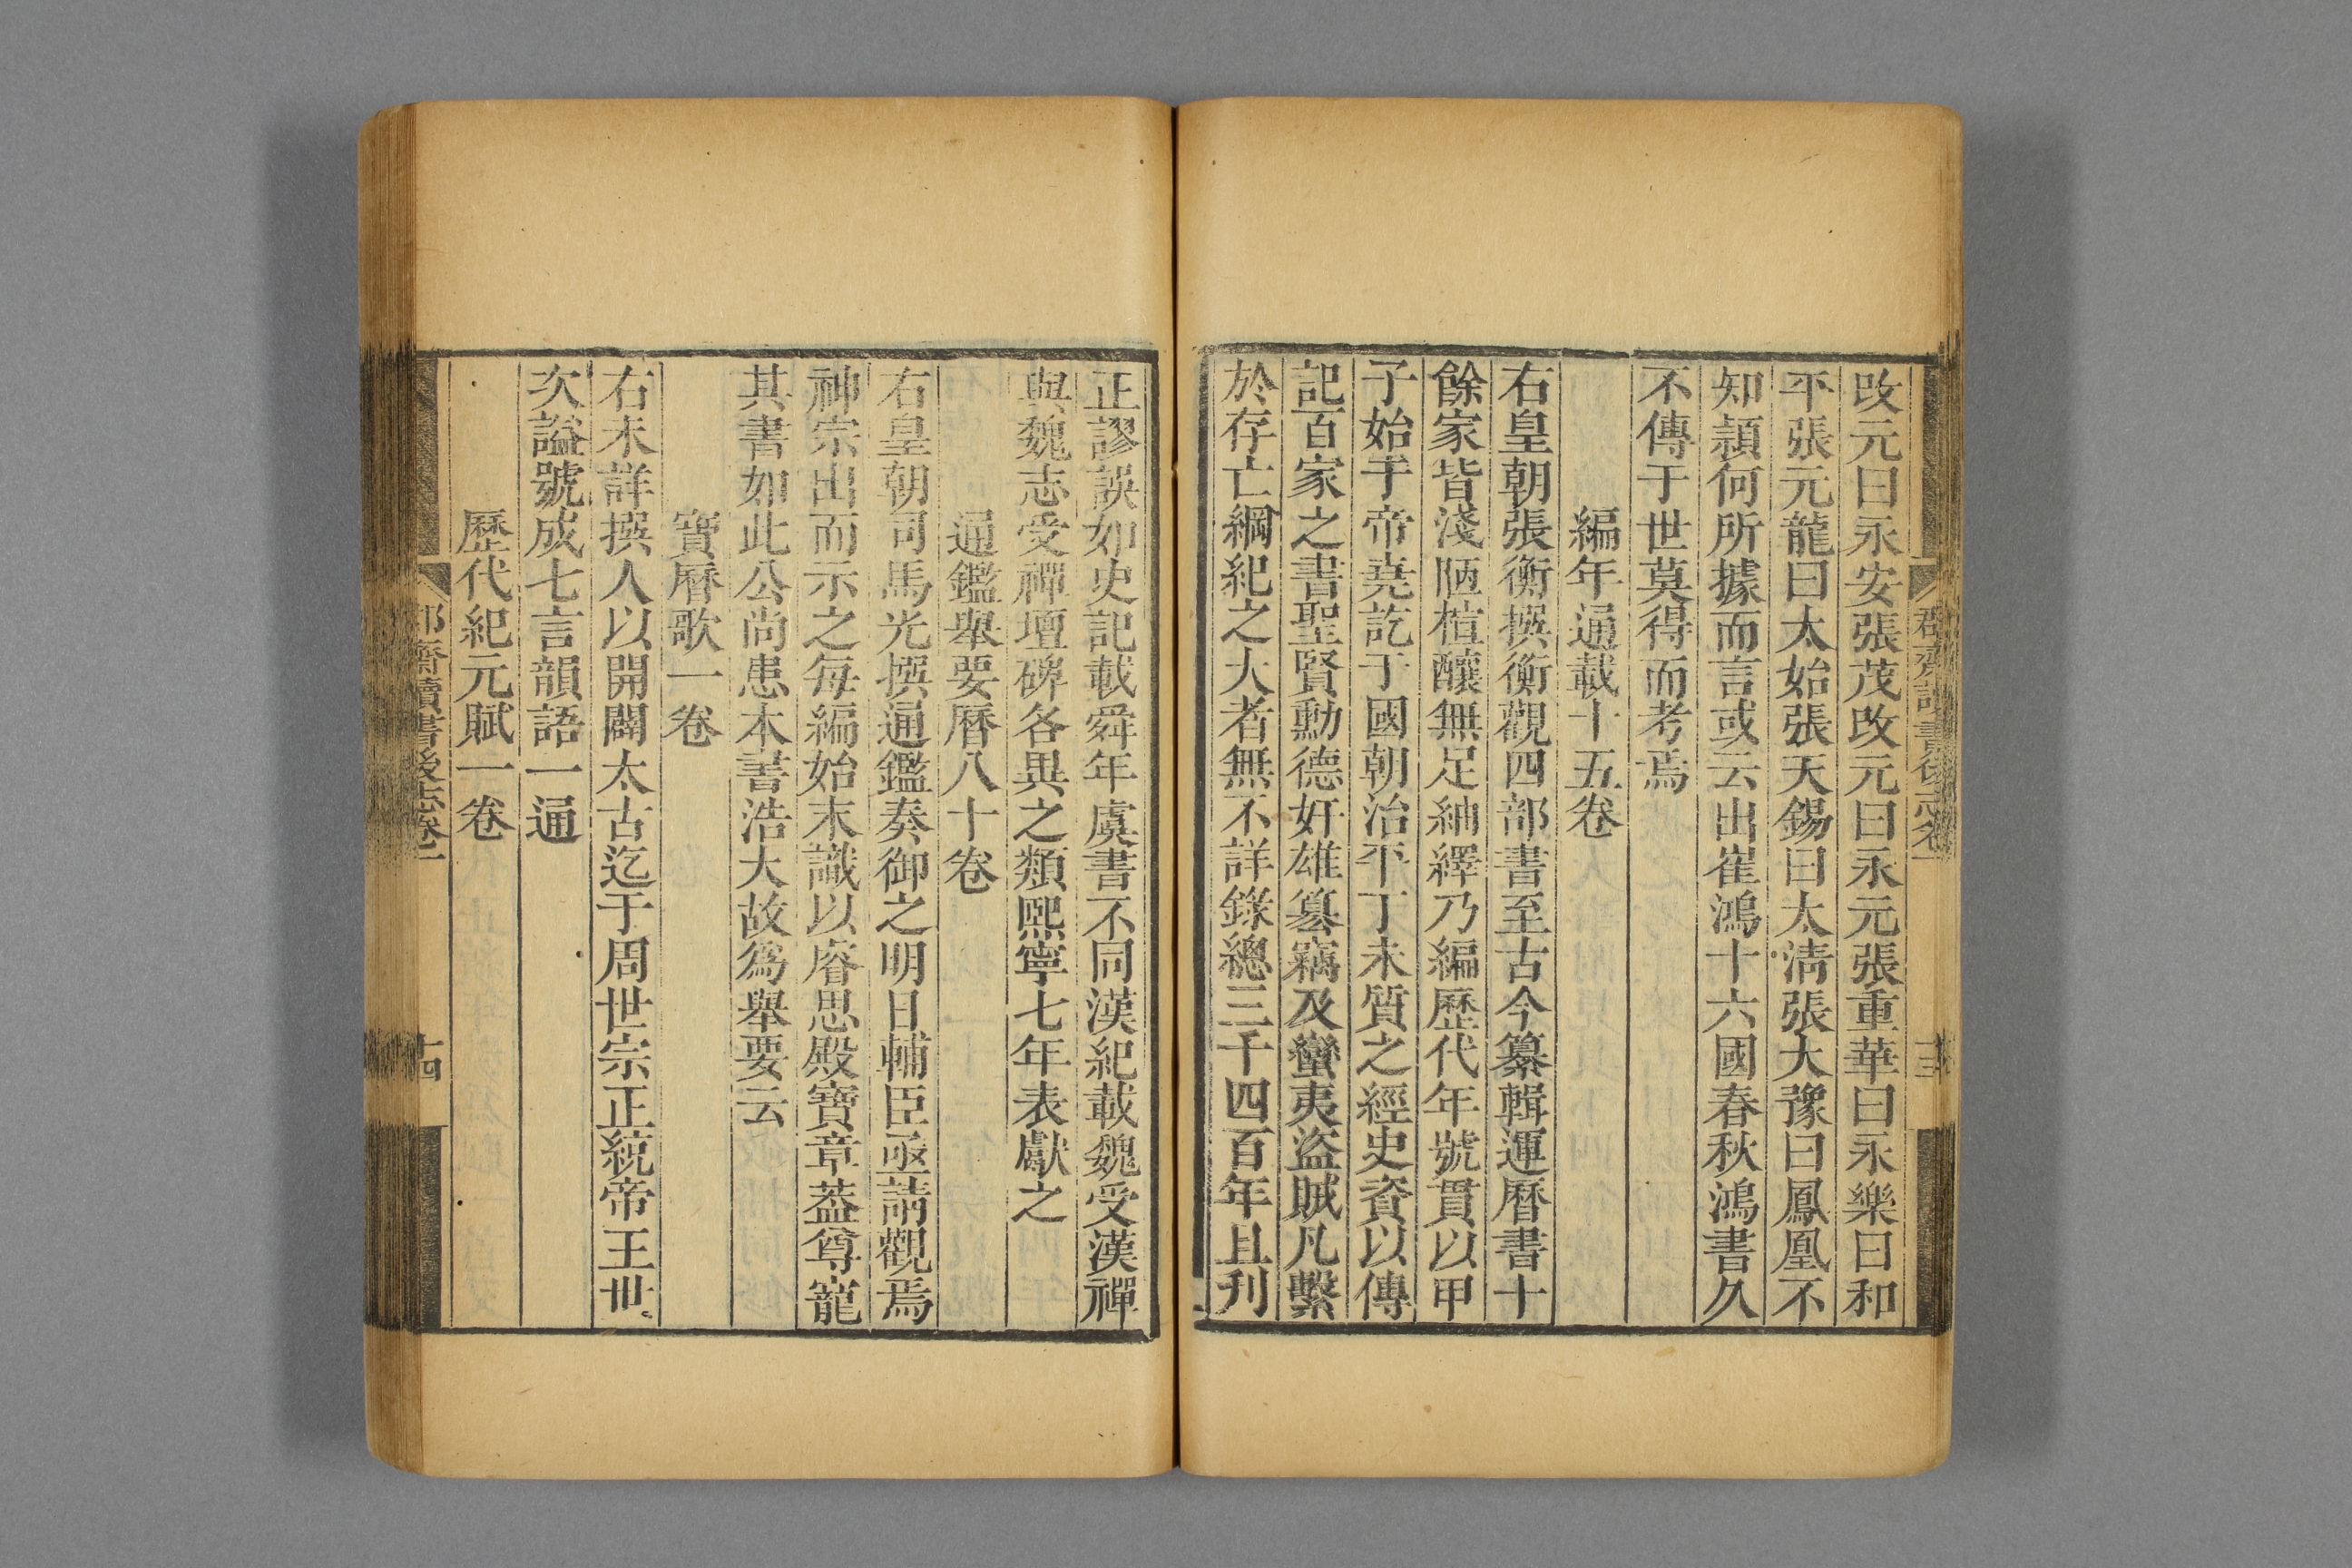 改元曰永安張茂改元曰永元張重華曰永樂曰和
平張元龍曰太始張天錫曰太淸張大豫曰鳳凰不
知頴何所據而言或云出崔鴻十六國春秋鴻書久
不傳于世莫得而考焉
編年通載十五卷
右皇朝張衡撰衡觀四部書至古今纂輯運曆書十
餘家皆淺陋楦釀無足紬繹乃編歷代年號貫以甲
子始于帝堯訖于國朝治平丁未質之經史資以傳
記百家之書聖賢勳德奸雄簒竊及蠻夷盜賊凡繫
於存亡綱紀之大者無不詳錄總三千四百年且刋
正謬誤如史記載舜年虞書不同漢紀載魏受漢禪
與魏志受禪壇碑各異之類熙寧七年表獻之
通鑑舉要曆八十卷
右皇朝司馬光撰通鑑奏御之明日輔臣亟請觀焉
神宗出而示之每編始末識以睿思殿寶章葢尊寵
其書如此公尚患本書浩大故爲舉要云
寶曆歌一卷
右未詳撰人以開闢太古迄于周世宗正統帝王世
次謚號成七言韻語一通
歷代紀元賦一卷
郡齋讀書後志卷一
十四